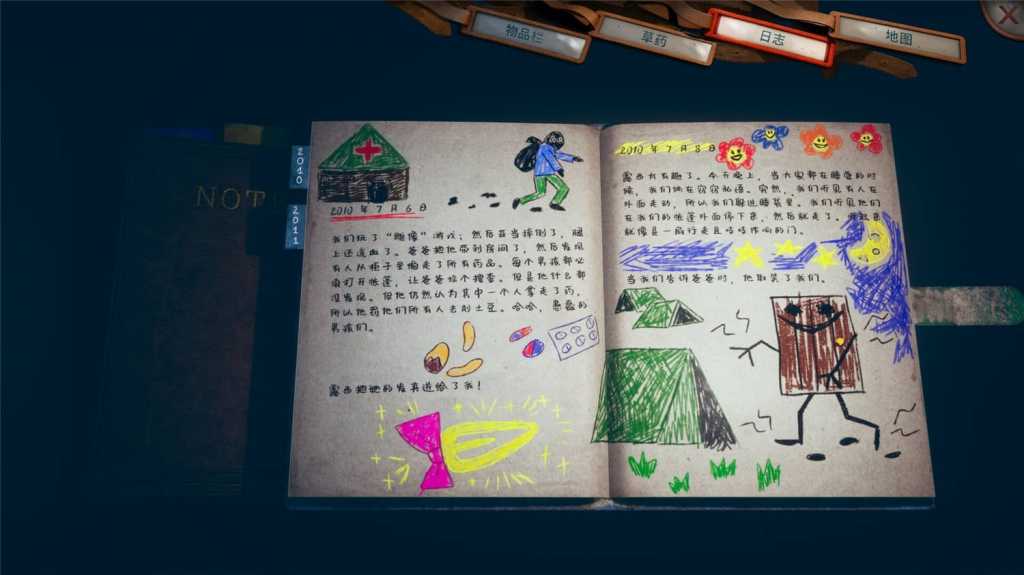 物品栏
草药
日志
地图
NOT
2010
2011
2010 年 7 月 6 日
我们玩了“雕像”游戏；然后菲当摔倒了，腿
上还流血了。爸爸把他带到房间了，然后发现
有人从柜子里偷走了所有药品。每个男孩都必
须打开帐篷，让爸爸挨个搜查。但是他什么都
没发现。但他仍然认为其中一个人拿走了药，
所以他罚他们所有人去削土豆。哈哈，愚蠢的
男孩们。
露西把她的发夹送给了我！
2010 年 7 月 8 日
露西太有趣了。今天晚上，当大家都在睡觉的时
候，我们他在窃窃私语。突然，我们听见有人在
外面走动，所以我们躲进睡袋里。我们听见他们
在我们的帐篷外面停下来，然后就走了。
就像是一扇行走且吱吱作响的门。
当我们告诉爸爸时，他取笑了我们。